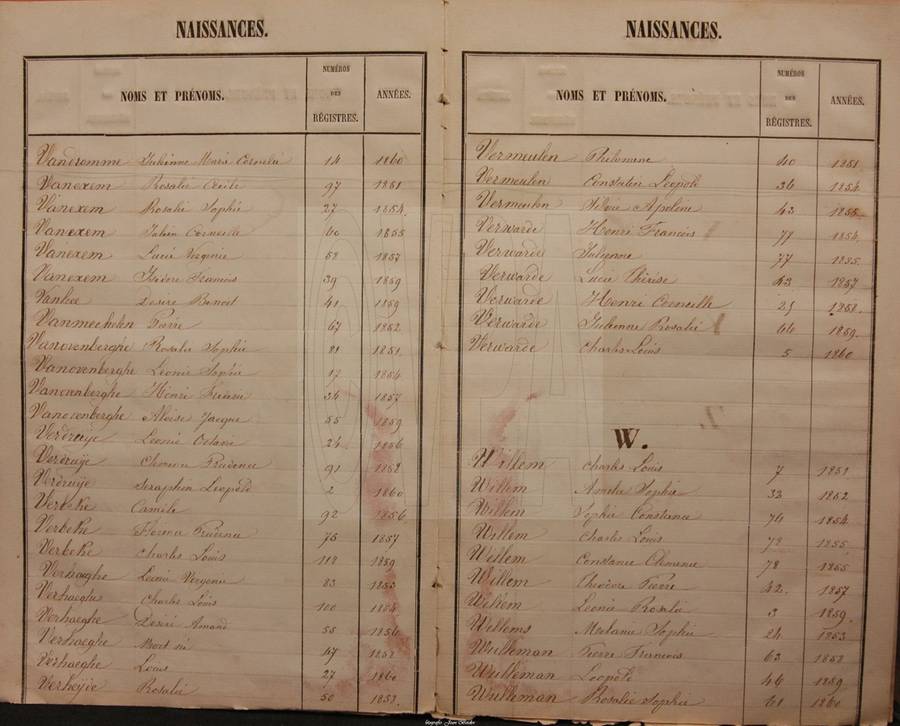 NAISSANCES.
NOMS ET PRÉNOMS.
NUMÉROS
DES
RÉGISTRES.
ANNÉES.
Vandromme Julienne Marie Cornelie 14 1860
Vanexem Rosalie Cecile 97 1851
Vanexem Rosalie Sophie 27 1854.
Vanexem Julien Corneille 60 1855
Vanexem Lucie Virginie 52 1857
Vanexem Isidore Francois 39 1859
Vanhee Desire Benoit 41 1859
Vanmechelen Pierre 67 1852
Vanovenberghe Rosalie Sophie 81 1851
Vanovenberghe Leonie Sophie 17 1854
Vanovenberghe Henri 34 1857
Vanovenberghe Aloïse Jacque 55 1859
Verdruije Leonie Octavie 24 1856
Verdruije Prudence 91 1852
Verdruije Seraphin Leopold 2 1860
Verbeke Camile 92 1856
Verbeke 75 1857
Verbeke Charles Louis 119 1859
Verhaeghe 83 1853
Verhaeghe Charles Louis 100 1854
Verhaeghe Desiré Amand 55 1856
Verhaeghe Mort né 47 1858
Verhaeghe Louis 27 1860
Verheijie Rosalie 50 1852.
NAISSANCES.
NOMS ET PRÉNOMS.
NUMÉROS
DES
RÉGISTRES.
ANNÉES.
Vermeulen Philomene 40 1851
Vermeulen Constantin Leopold 36 1854
Vermeulen Silvie Apolone 43 1855
Verwarde Henri Francois 77 1854
Verwarde Julienne 77 1855
Verwarde Lucie Thérèse 43 1857
Verwarde Henri Corneille 25 1858.
Verwarde Julienne Rosalie 64 1859.
Verwarde Charles Louis 5 1860
W.
Willem Charles Louis 7 1851
Willem Amelie Sophie 33 1852
Willem Sophie Constance 74 1854
Willem Charles Louis 72 1855
Willem Constance Clemence 78 1855
Willem Pierre 42 1857
Willem Leonie Rosalie 3 1859.
Willems Melanie Sophie 24 1853
Wulleman Pierre Francois 63 1858
Wulleman Leopold 46 1859
Wulleman Rosalie Sophie 61 1860